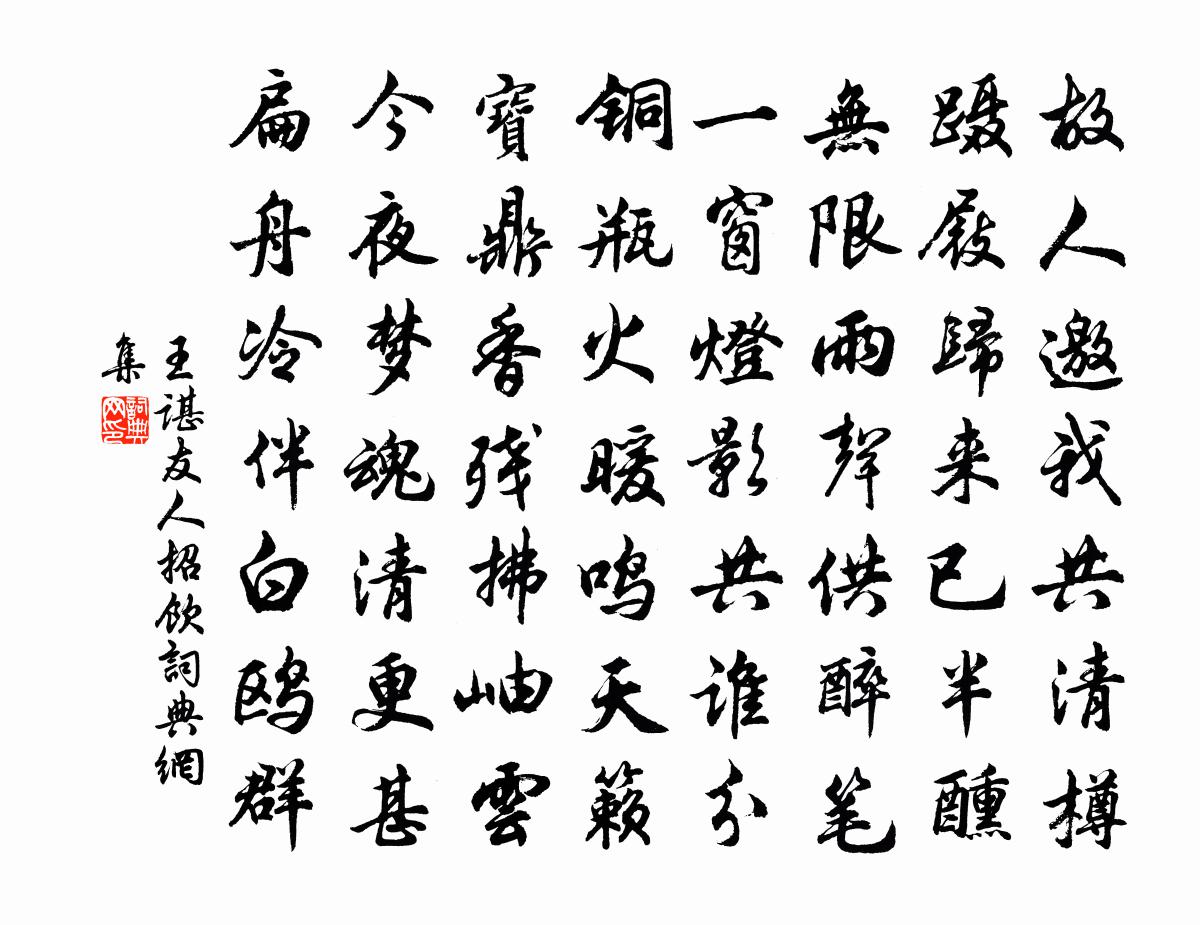 故人邀我共清樽
蹑屐歸来已半醺
無限雨聲供醉笔
一窗燈影共谁分
铜瓶火暖鸣天籟
寶鼎香残拂岫雲
今夜梦魂清更甚
扁舟冷伴白鸥群
王谌友人招飲詞典網
集
詞典网印